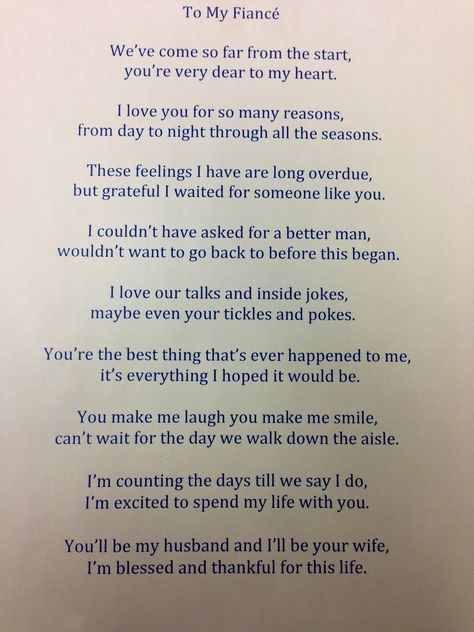 To My Fiancé
We’ve come so far from the start,
you’re very dear to my heart.
I love you for so many reasons,
from day to night through all the seasons.
These feelings I have are long overdue,
but grateful I waited for someone like you.
I couldn’t have asked for a better man,
wouldn’t want to go back to before this began.
I love our talks and inside jokes,
maybe even your tickles and pokes.
You’re the best thing that’s ever happened to me,
it’s everything I hoped it would be.
You make me laugh you make me smile,
can’t wait for the day we walk down the aisle.
I’m counting the days till we say I do,
I’m excited to spend my life with you.
You’ll be my husband and I’ll be your wife,
I’m blessed and thankful for this life.